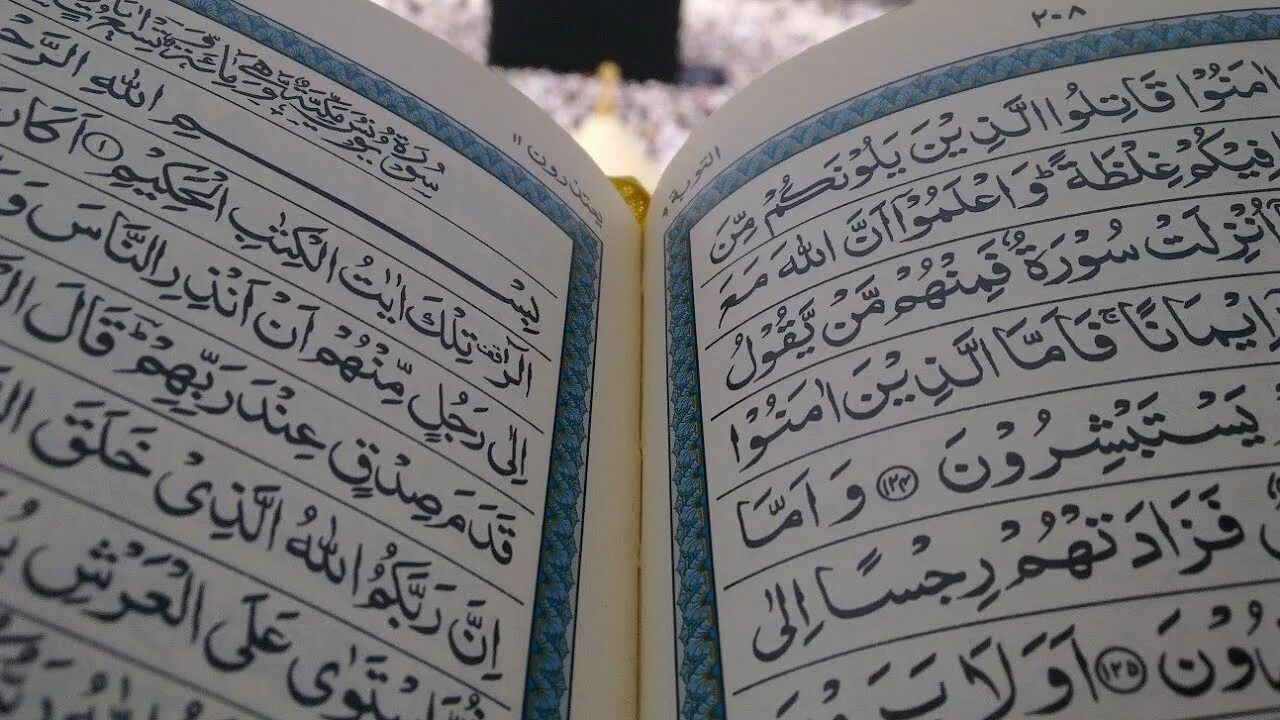 ٢٠٨
التوبة ٩
اٰمَنُوْا قَاتِلُوا الَّذِيْنَ يَلُوْنَكُمْ مِّنَ
فِيْكُمْ غِلْظَةً ؕ وَاعْلَمُوْۤا اَنَّ اللّٰهَ مَعَ
اُنْزِلَتْ سُوْرَةٌ فَمِنْهُمْ مَّنْ يَّقُوْلُ
اِيْمَانًا ۚ فَاَمَّا الَّذِيْنَ اٰمَنُوْا
يَسْتَبْشِرُوْنَ ﴿١٢٤﴾ وَاَمَّا
فَزَادَتْهُمْ رِجْسًا اِلٰى
﴿١٢٥﴾ اَوَلَا
يعتذرون ١١
سُوْرَةُ يُوْنُسَ مَكِّيَّةٌ وَّهِيَ مِائَةٌ وَّتِسْعُ
بِسْمِ اللّٰهِ الرَّحْ
الٓرٰ ۫ تِلْكَ اٰيٰتُ الْكِتٰبِ الْحَكِيْمِ ﴿١﴾ اَكَانَ
اِلٰى رَجُلٍ مِّنْهُمْ اَنْ اَنْذِرِ النَّاسَ وَ
قَدَمَ صِدْقٍ عِنْدَ رَبِّهِمْ ؕ قَالَ
اِنَّ رَبَّكُمُ اللّٰهُ الَّذِيْ خَلَقَ
اسْتَوٰى عَلَى الْعَرْشِ